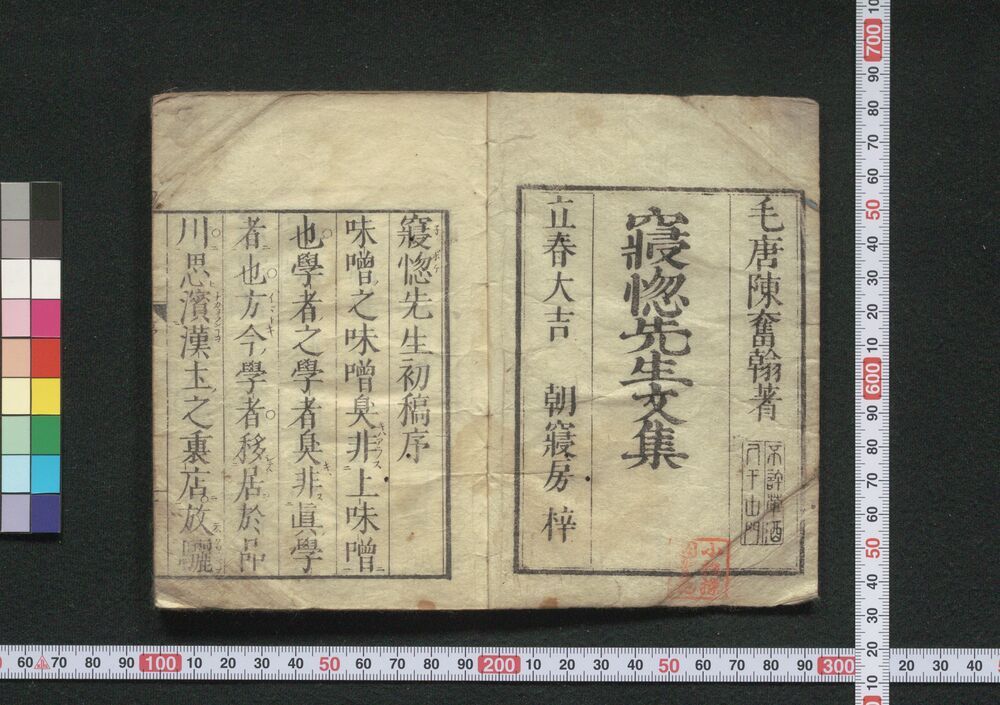 毛唐陳奮翰著
不許葷酒
入于山門
寢惚先生文集
立春大吉　朝寢房　梓
寢惚先生初稿序
味噌之味噌臭非上味噌
也學者之學者臭非眞學
者也方今學者移居於品
川思濱漢土之裏店放
60 70 80 90 100 10 20 30 40 50 60 70 80 90 200 10 20 30 40 50 60 70 80 90 300 10 20 30 40 50
10 700 90 80 70 60 50 40 30 20 10 600 90 80 70 60 50 40 30 20 10